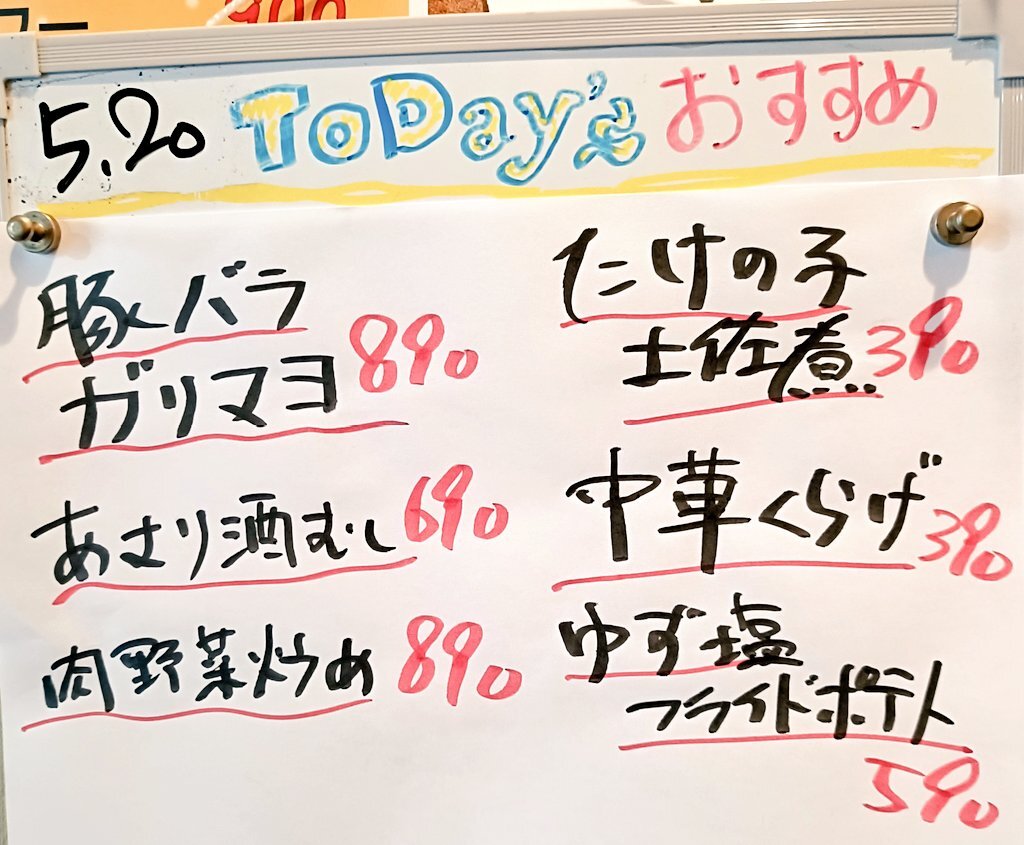 5.20 ToDay's おすすめ
豚バラ
ガリマヨ 890
あさり酒むし 690
肉野菜炒め 890
たけの子
土佐煮 390
中華くらげ 390
ゆず塩
フライドポテト
590